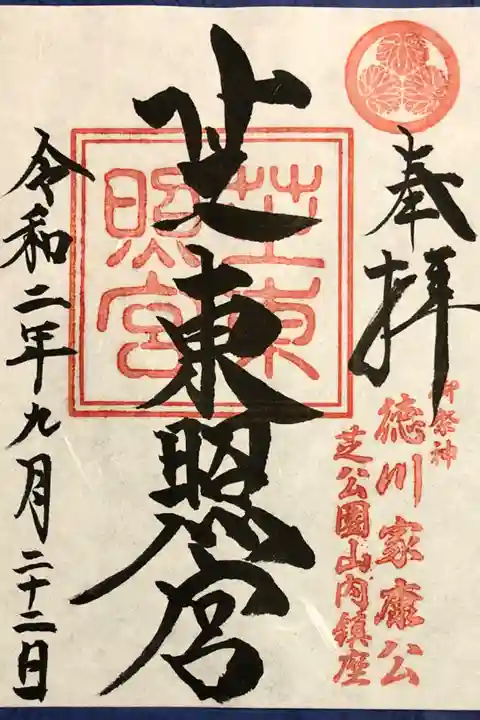 奉拝
御祭神
徳川家康公
芝公園山内鎮座
芝東照宮
芝東
照宮
令和二年九月二十二日